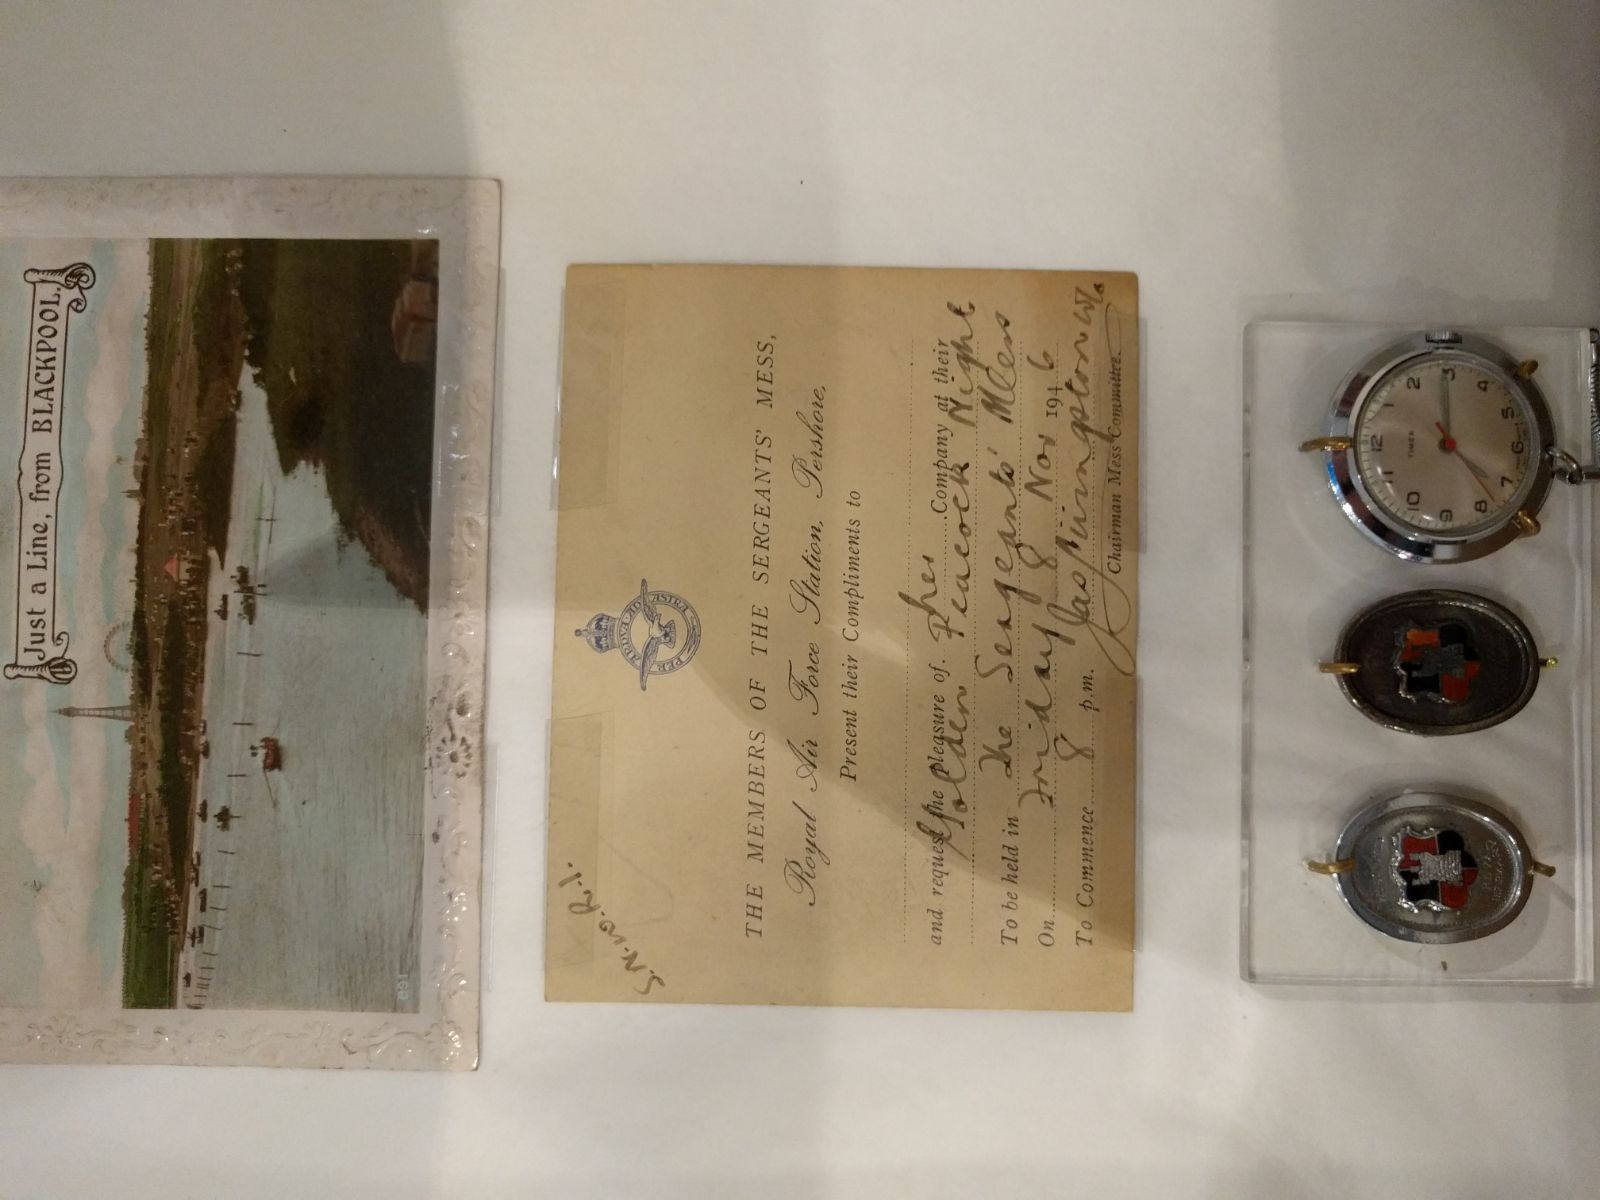 Just a Line, from BLACKPOOL.
168
THE MEMBERS OF THE SERGEANTS' MESS,
Royal Air Force Station, Pershore,
Present their Compliments to
and request the pleasure of Company at their
Golden Peacock Night
To be held in The Sergeants' Mess
On Friday 8 Nov 1946
To Commence 8 p.m.
Chairman Mess Committee.
PER ARDUA AD ASTRA
TIMEX
12
1
2
3
4
5
6
7
8
9
10
11